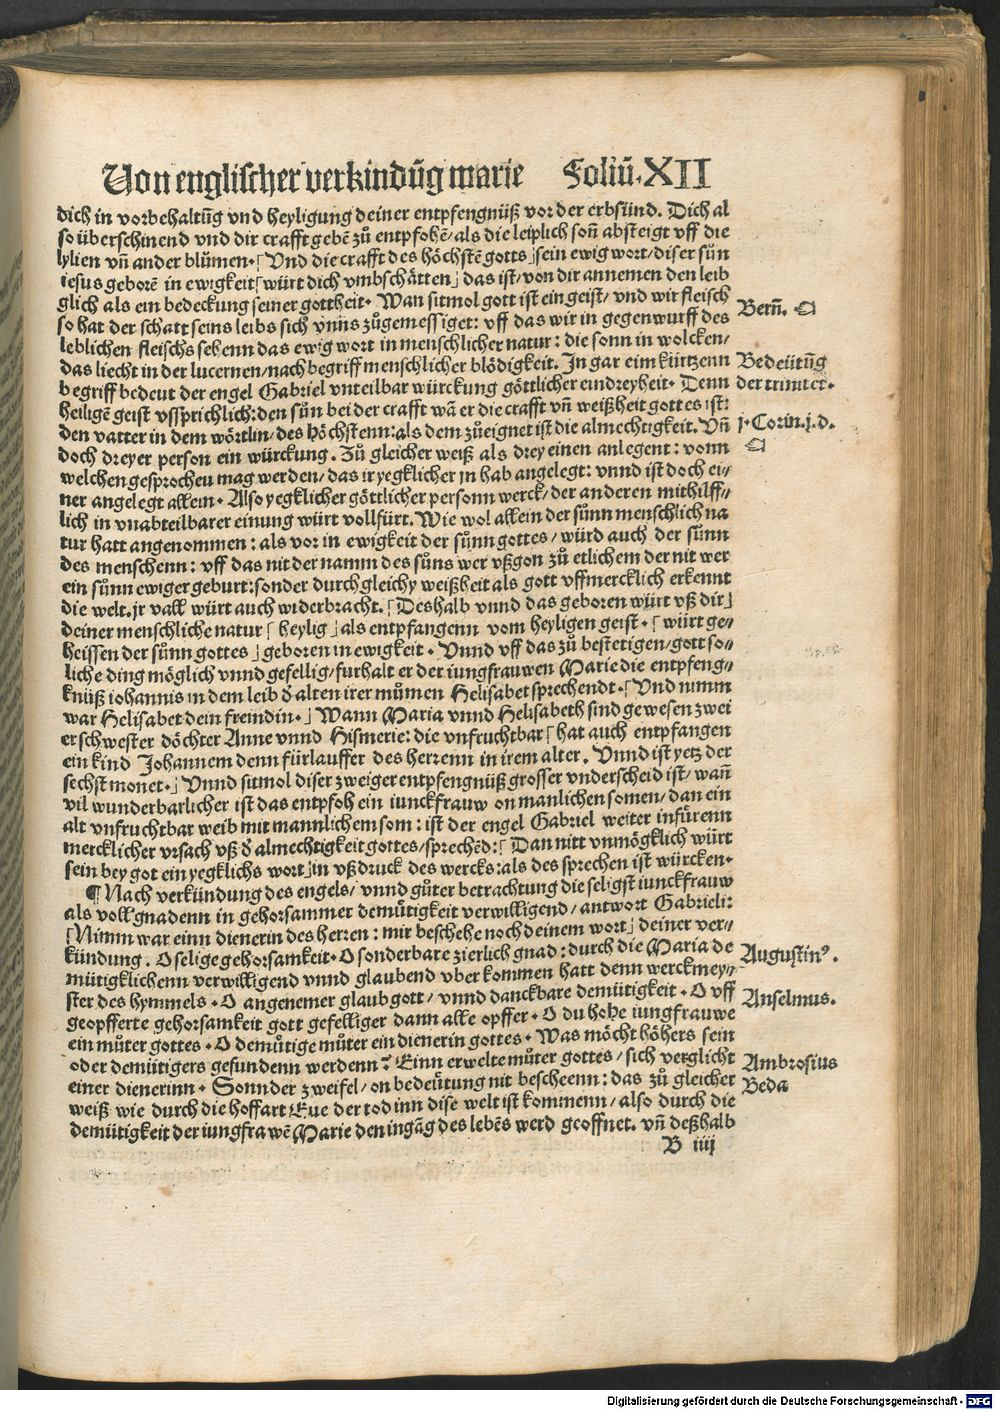 Von englischer verkindūg marie Foliū.XII
dich in vorbehaltūg vnd heyligung deiner entpfengnüß vor der erbsünd. Dich al
so überschinend vnd dir crafft gebē zů entpfohē/als die leiplich soñ absteigt vff die
lylien vñ ander blůmen.⌈Vnd die crafft des höchstē gotts⌋sein ewig wort/diser sůn
iesus geborē in ewigkeit⌈würt dich vmbschätten⌋das ist/von dir annemen den leib
glich als ein bedeckung seiner gottheit. Wan sitmol gott ist ein geist/vnd wir fleisch
Berñ.
so hat der schatt seins leibs sich vnns zůgemessiget: vff das wir in gegenwurff des
leblichen fleischs sehenn das ewig wort in menschlicher natur: die sonn in wolcken/
das liecht in der lucernen/nach begriff menschlicher blödigkeit. In gar eim kürtzenn
Bedeütūg
begriff bedeut der engel Gabriel vnteilbar würckung göttlicher eindreyheit. Denn
der trinitet.
heiligē geist vssprichlich:den sůn bei der crafft wā er die crafft vñ weißheit gottes ist:
den vatter in dem wörtlin/des höchstenn:als dem zůeignet ist die almechtigkeit. Vñ
j.Corin.j.d.
doch dreyer person ein würckung. Zů gleicher weiß als drey einen anlegent: vonn
welchen gesprochen mag werden/das ir yegklicher jn hab angelegt: vnnd ist doch ei⸗
ner angelegt allein. Also yegklicher göttlicher personn werck/der anderen mithilff⸗
lich in vnabteilbarer einung würt vollfürt. Wie wol allein der sůnn menschlich na
tur hatt angenommen: als vor in ewigkeit der sůnn gottes/würd auch der sůnn
des menschenn: vff das nit der namm des sůns wer vßgon zů etlichem der nit wer
ein sůnn ewiger geburt:sonder durch gleichy weißheit als gott vffmercklich erkennt
die welt.jr vall würt auch widerbracht.⌈Deshalb vnnd das geboren würt vß dir⌋
deiner menschliche natur⌈heylig⌋als entpfangenn vom heyligen geist.⌈würt ge⸗
heissen der sůnn gottes⌋geboren in ewigkeit. Vnnd vff das zů bestetigen/gott so⸗
liche ding möglich vnnd gefellig/furhalt er der iungfrauwen Marie die entpfeng⸗
knüß iohannis in dem leib d̕ alten irer můmen Helisabet sprechendt.⌈Vnd nimm
war Helisabet dein freindin.⌋Wann Maria vnnd Helisabeth sind gewesen zwei
er schwester döchter Anne vnnd Hismerie: die vnfruchtbar⌈hat auch entpfangen
ein kind Johannem denn fürlauffer des herzenn in irem alter. Vnnd ist yetz der
sechst monet.⌋Vnnd sitmol diser zweiger entpfengnüß grosser vnderscheid ist/wañ
vil wunderbarlicher ist das entpfoh ein iunckfrauw on manlichen somen/dan ein
alt vnfruchtbar weib mit mannlichem som: ist der engel Gabriel weiter infürenn
mercklicher vrsach vß d̕ almechtigkeit gottes/sprechēd:⌈Dan nitt vnmögklich würt
sein bey got ein yegklichs wort⌋in vßdruck des wercks:als des sprechen ist würcken.
¶Nach verkündung des engels/vnnd gůter betrachtung die seligst iunckfrauw
als voll gnadenn in gehorsammer demütigkeit verwilligend/antwort Gabrieli:
⌈Nimm war einn dienerin des herren: mir beschehe noch deinem wort⌋deiner ver⸗
kündung. O selige gehorsamkeit.O sonderbare zierlich gnad:durch die Maria de
Augustinꝰ.
mütigklichenn verwilligend vnnd glaubend vberkommen hatt denn werckmey⸗
ster des hymmels. O angenemer glaub gott/vnnd danckbare demütigkeit. O vff
Anselmus.
geopfferte gehorsamkeit gott gefelliger dann alle opffer. O du hohe iungfrauwe
ein můter gottes. O demütige můter ein dienerin gottes. Was möcht höhers sein
oder demütigers gefundenn werdenn? Einn erwelte můter gottes/sich verglicht
Ambrosius
einer dienerinn. Sonnder zweifel/on bedeütung nit bescheenn: das zů gleicher
Beda
weiß wie durch die hoffart Eue der tod inn dise welt ist kommenn/also durch die
demütigkeit der iungfrawē Marie den ingāg des lebēs werd geoffnet. vñ deßhalb
B iiij
Digitalisierung gefördert durch die Deutsche Forschungsgemeinschaft - DFG